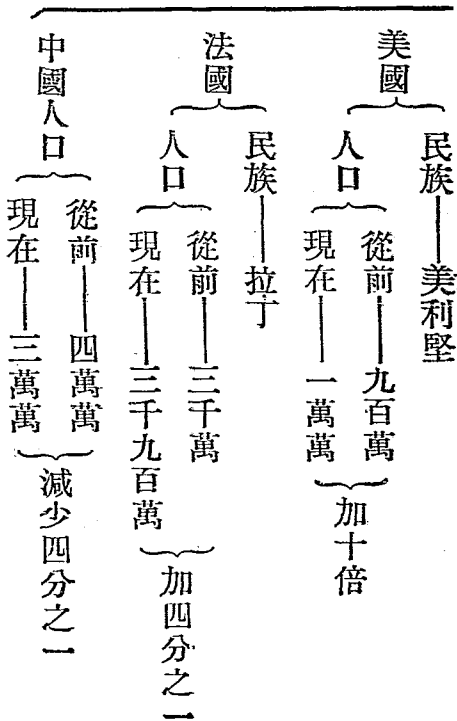 美國
民族——美利堅
人口
從前——九百萬
現在——一萬萬
加十倍
法國
民族——拉丁
人口
從前——三千萬
現在——三千九百萬
加四分之一
中國人口
從前——四萬萬
現在——三萬萬
減少四分之一